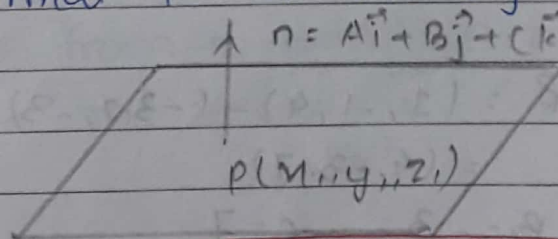 n = Ai⃗ + Bj⃗ + Ck
P(x₁, y₁, z₁)